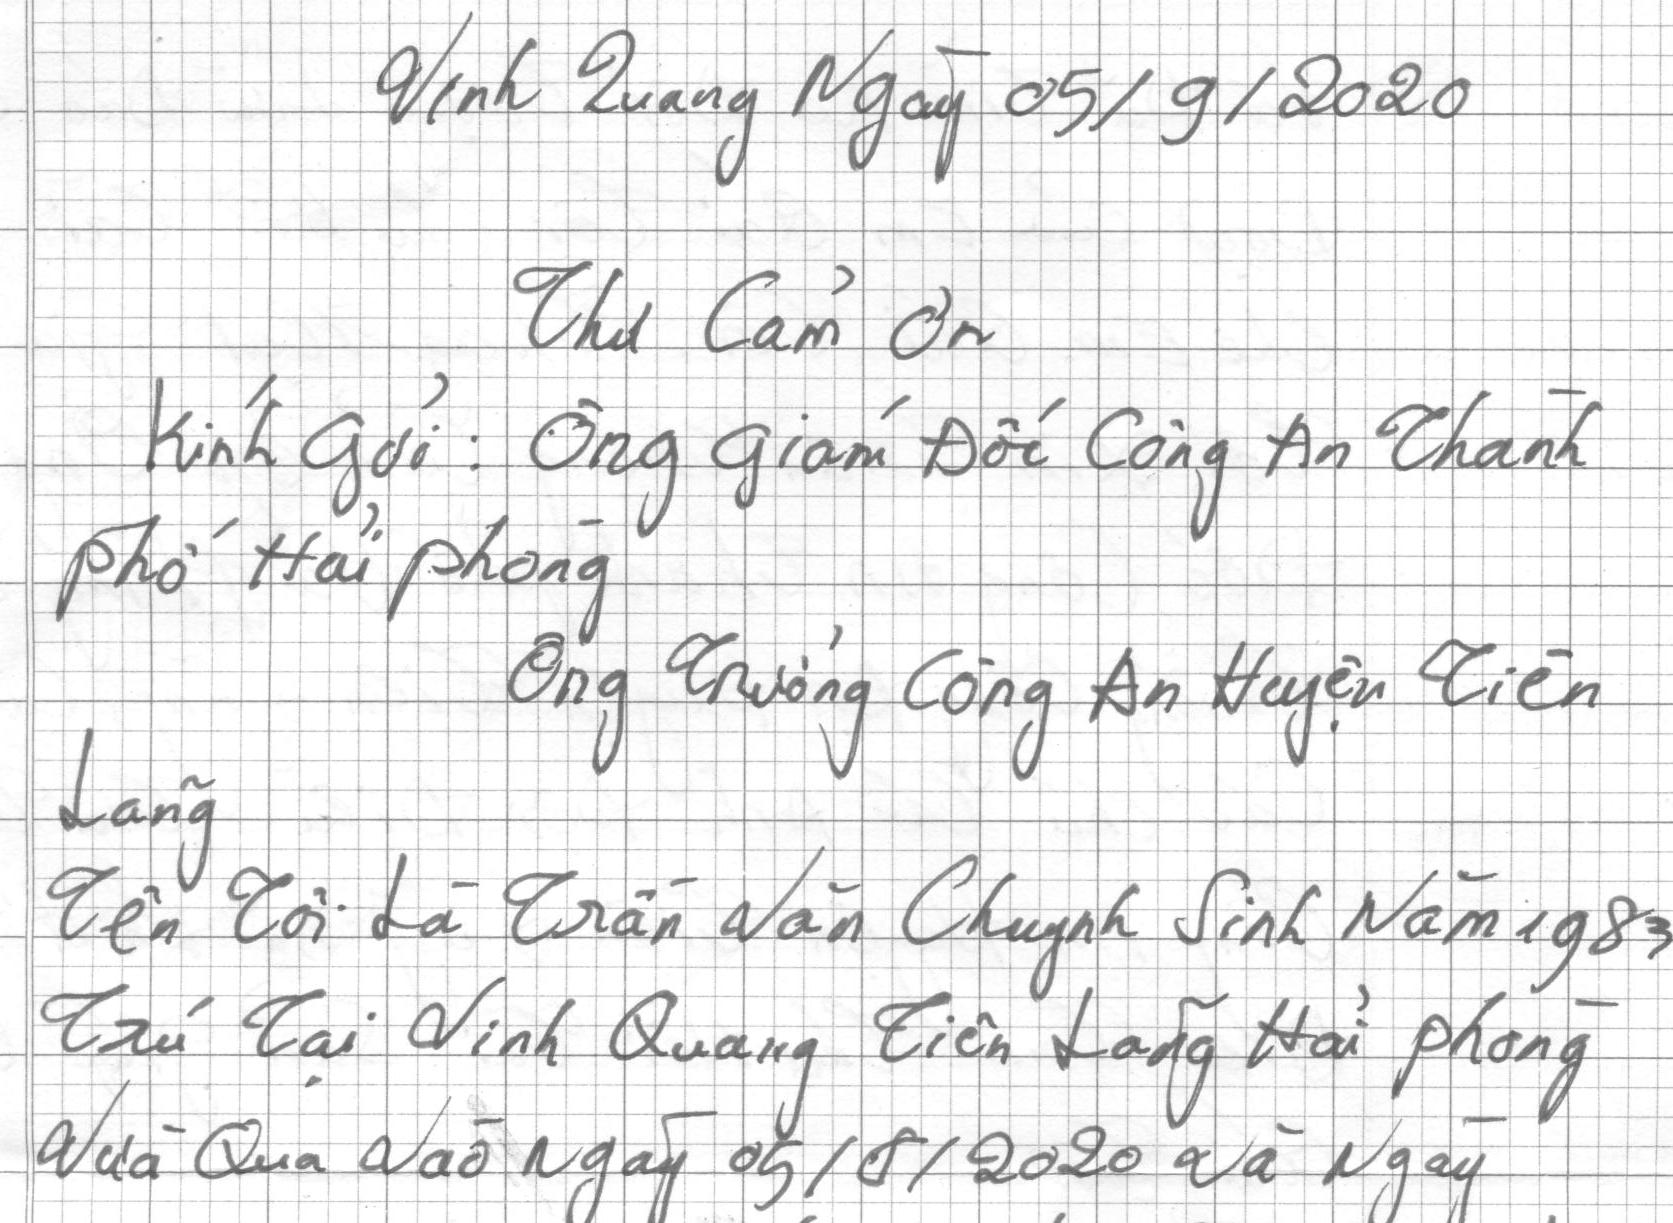 Vinh Quang Ngày 05/9/2020
Thư Cảm Ơn
Kính Gởi : Ông Giám Đốc Công An Thành
phố Hải phòng
Ông Trưởng Công An Huyện Tiên
Lãng
Tên Tôi Là Trần Văn Chuynh Sinh Năm 1983
Trú Tại Vinh Quang Tiên Lãng Hải phòng
Vừa Qua Vào Ngày 05/8/2020 Và Ngày